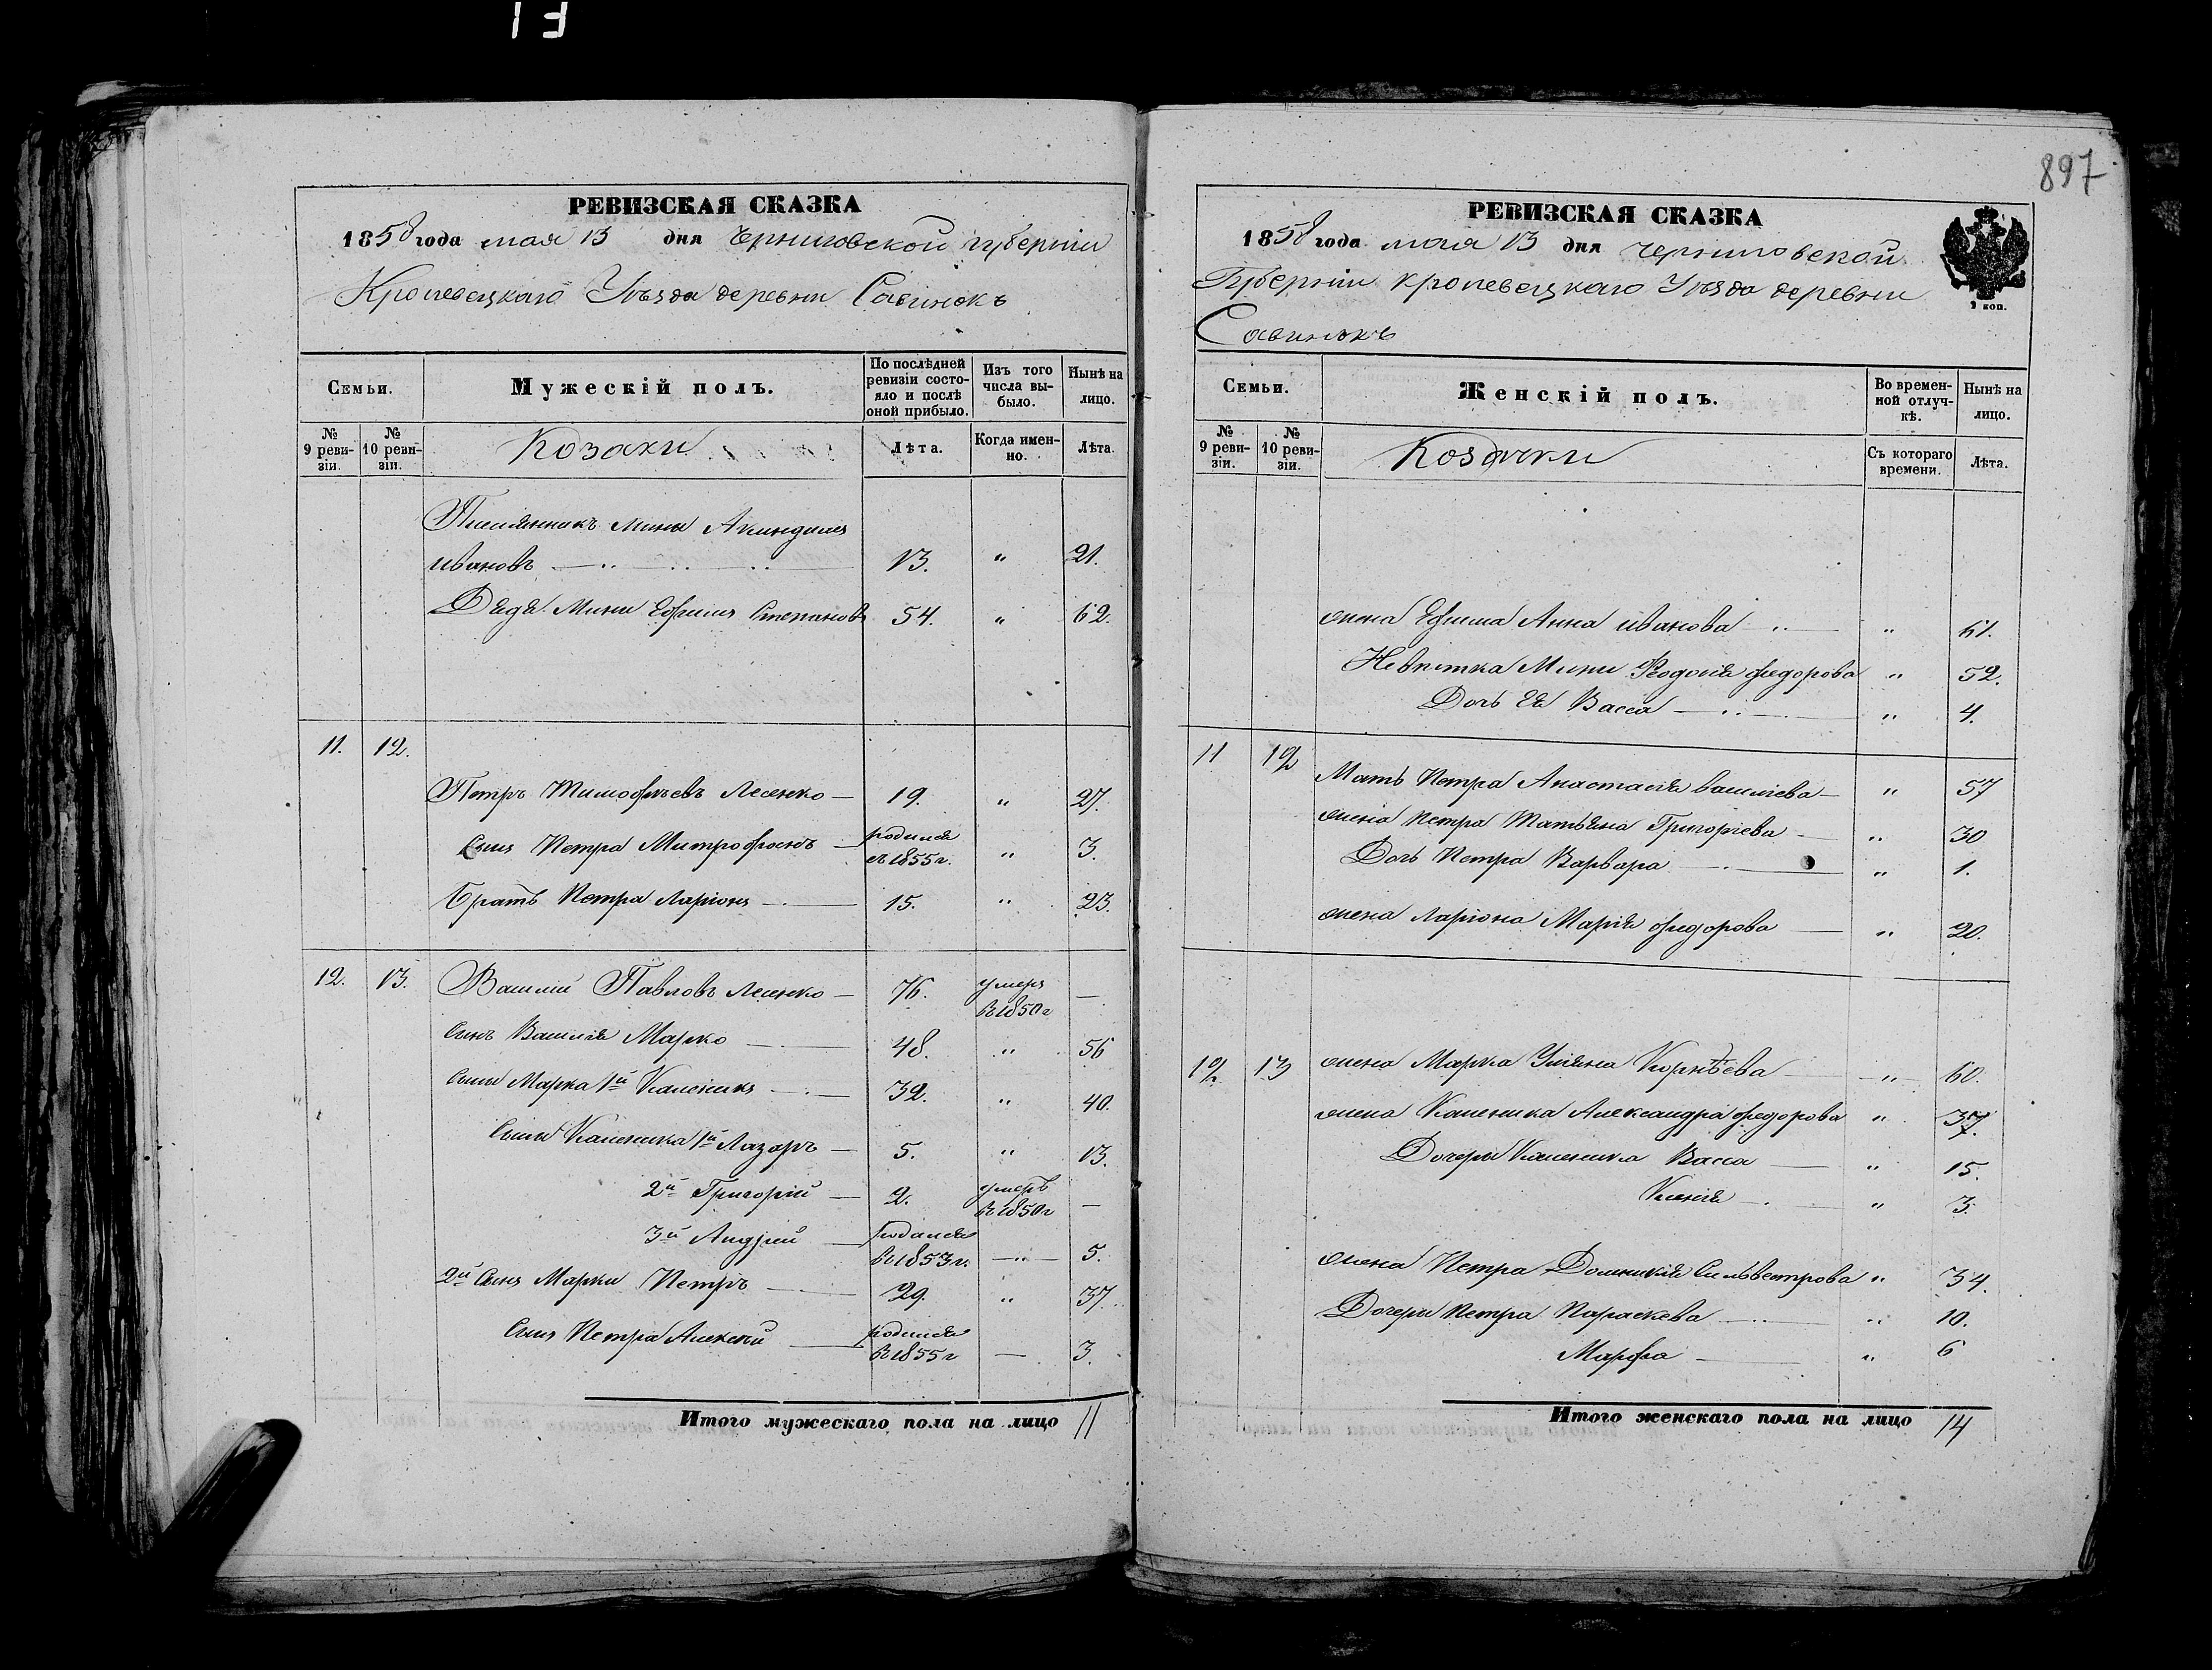 13
897
РЕВИЗСКАЯ СКАЗКА
1858 года мая 13 дня Черниговской губерніи
Кролевецкаго Уѣзда деревни Савинокъ
Семьи.
Мужескій полъ.
По послѣдней ревизіи состояло и послѣ оной прибыло.
Изъ того числа выбыло.
Нынѣ на лицо.
№ 9 ревизіи.
№ 10 ревизіи.
Козаки
Лѣта.
Когда именно.
Лѣта.
Племянникъ Мины Акиндинъ
Ивановъ 13. " 21.
Дядя Мины Ефимъ Степановъ 54. " 62.
11. 12.
Петръ Тимофѣевъ Лесенко — 19. " 27.
Сынъ Петра Митрофанъ — родился въ 1855 г. " 3.
Братъ Петра Ларіонъ — 15. " 23.
12. 13. Василій Павловъ Лесенко — 76. умеръ въ 1850 г —
Сынъ Василія Марко — 48. " 56
Сыны Марка 1й Каленикъ — 32. " 40.
Сыны Каленика 1й Лазарь — 5. " 13.
2й Григорій — 2. умеръ въ 1850 г —
3й Андрей — родился въ 1853 г. — " — 5.
2й Сынъ Марки Петръ — 29. " 37.
Сынъ Петра Алексей — родился въ 1855 г — 3.
Итого мужескаго пола на лицо 11
РЕВИЗСКАЯ СКАЗКА
1858 года мая 13 дня Черниговской
Губерніи Кролевецкаго Уѣзда деревни
Савинокъ
2 коп.
Семьи.
Женскій полъ.
Во временной отлучкѣ.
Нынѣ на лицо.
№ 9 ревизіи.
№ 10 ревизіи.
Козачки
Съ котораго времени.
Лѣта.
жена Ефима Анна Иванова — " 61.
Невѣстка Мины Феодосія Федорова " 52.
Дочь Ея Васса — " 4.
11 12 Мать Петра Анастасія Васильева — " 57
жена Петра Татьяна Григорьева — " 30
Дочь Петра Варвара — " 1.
жена Ларіона Марія Федорова — " 20.
12 13 жена Марка Уліяна Корнѣева — " — 60.
жена Каленика Александра Федорова " 37.
Дочери Каленика Васса — " 15.
Ксенія — " 3.
жена Петра Домникія Сильвестрова " 34.
Дочери Петра Параскева — " 10.
Марфа — " 6
Итого женскаго пола на лицо 14